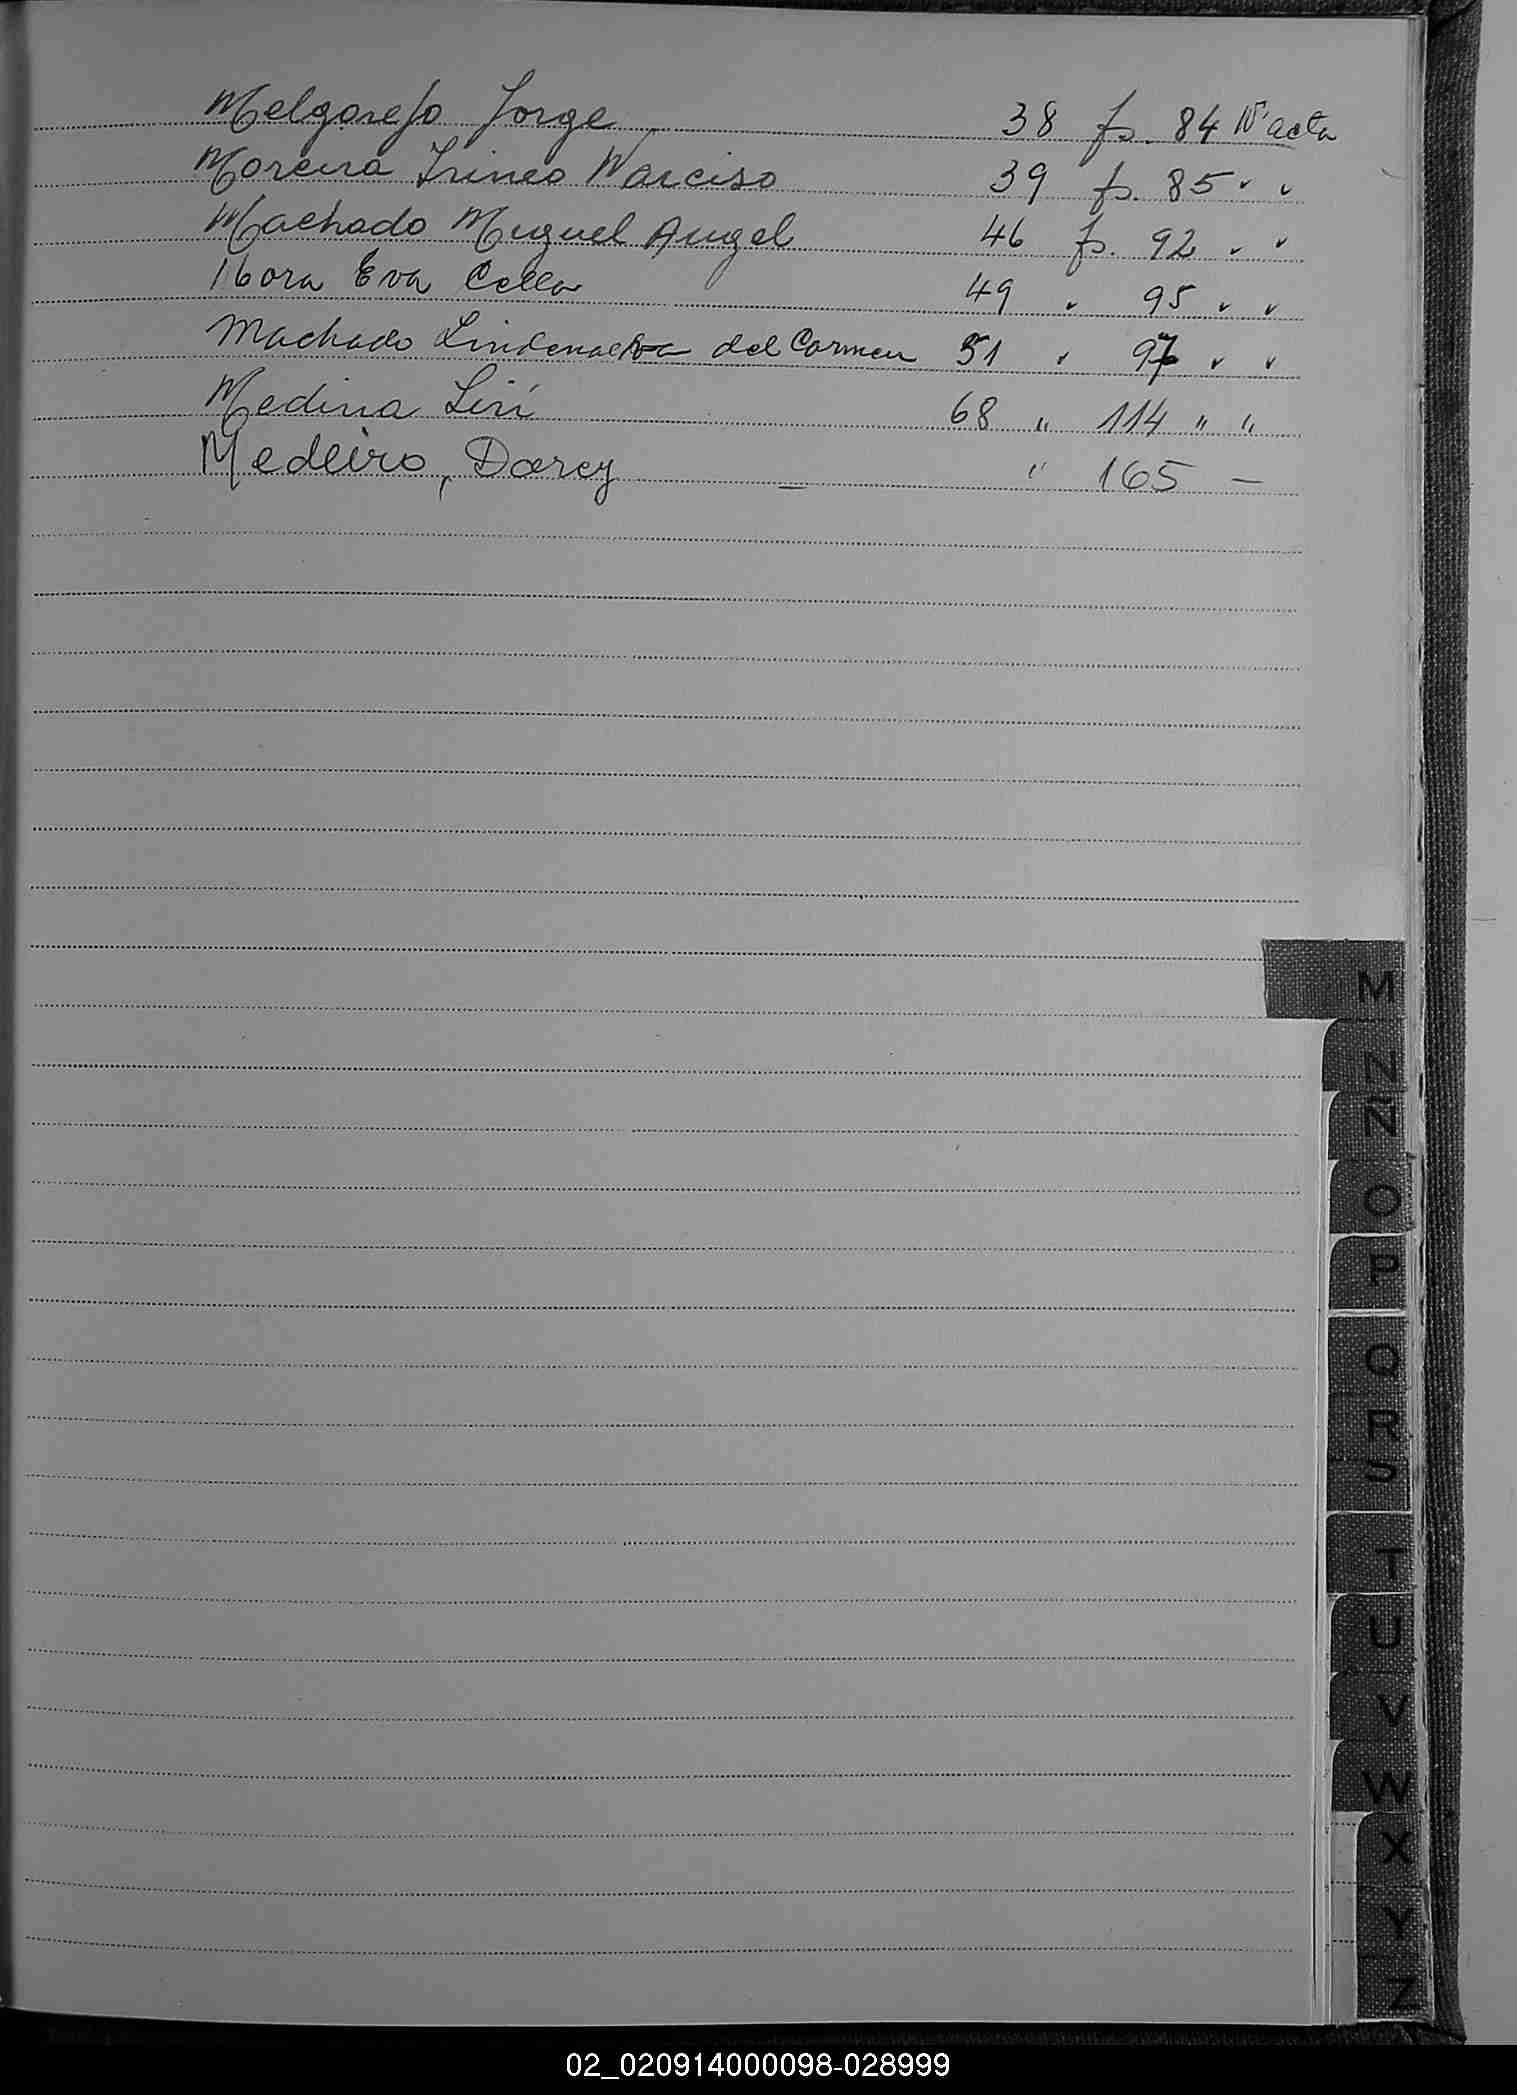 Melgarejo Jorge 38 fs. 84 Nº acta
Moreira Irineo Narciso 39 fs. 85 " "
Machado Miguel Angel 46 fs. 92 " "
Mora Eva Celia 49 " 95 " "
Machado del Carmen 51 " 97 " "
Medina Liri 68 " 114 " "
Medeiro, Darcy — " 165 —
M
N
Ñ
O
P
Q
R
S
T
U
V
W
X
Y
Z
02_020914000098-028999